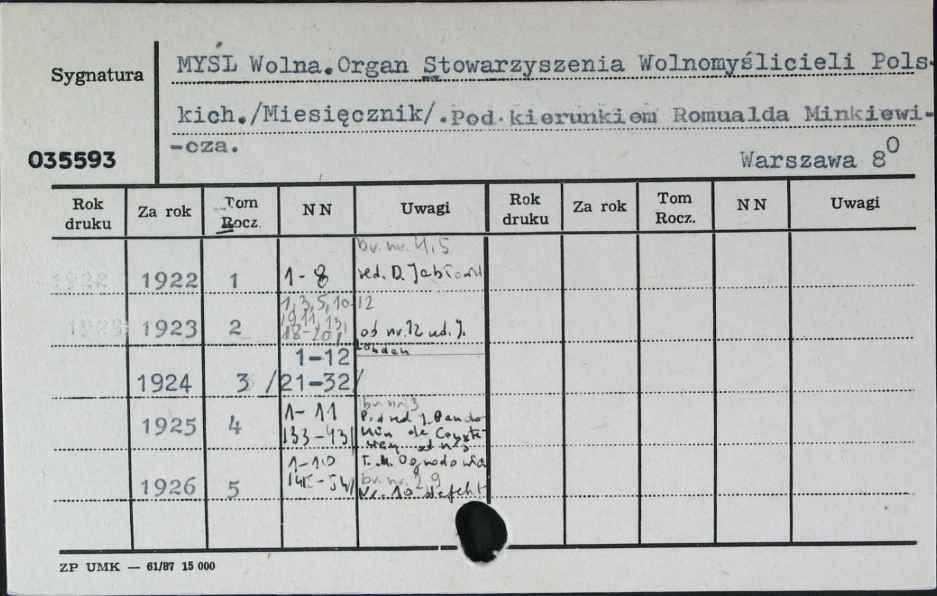 MYSL Wolna.Organ Stowarzyszenia Wolnomyślicieli Pols-
Sygnatura
kich./Miesięcznik/.Pod kierunkiem Romualda Minkiewi-
-cza.
035593
Warszawa 8⁰
Rok druku Za rok Tom Rocz. NN Uwagi Rok druku Za rok Tom Rocz. NN Uwagi
br. nr. 4,5
1922 1922 1 1-8 red. D. Jabłoń
1, 3, 5, 10 12
1923 2 od nr. 12 red. J.
18-20/ Landau
1-12
1924 3 /21-32/
br. nr 3
1925 4 1-11 Pod red. J. Baudo
/33-43/ uin de Courte
od nr 5
1-10 T. M. Ogrodowia
br. nr. 2 9
1926 5 Nr. 10 defekt
ZP UMK — 61/87 15 000